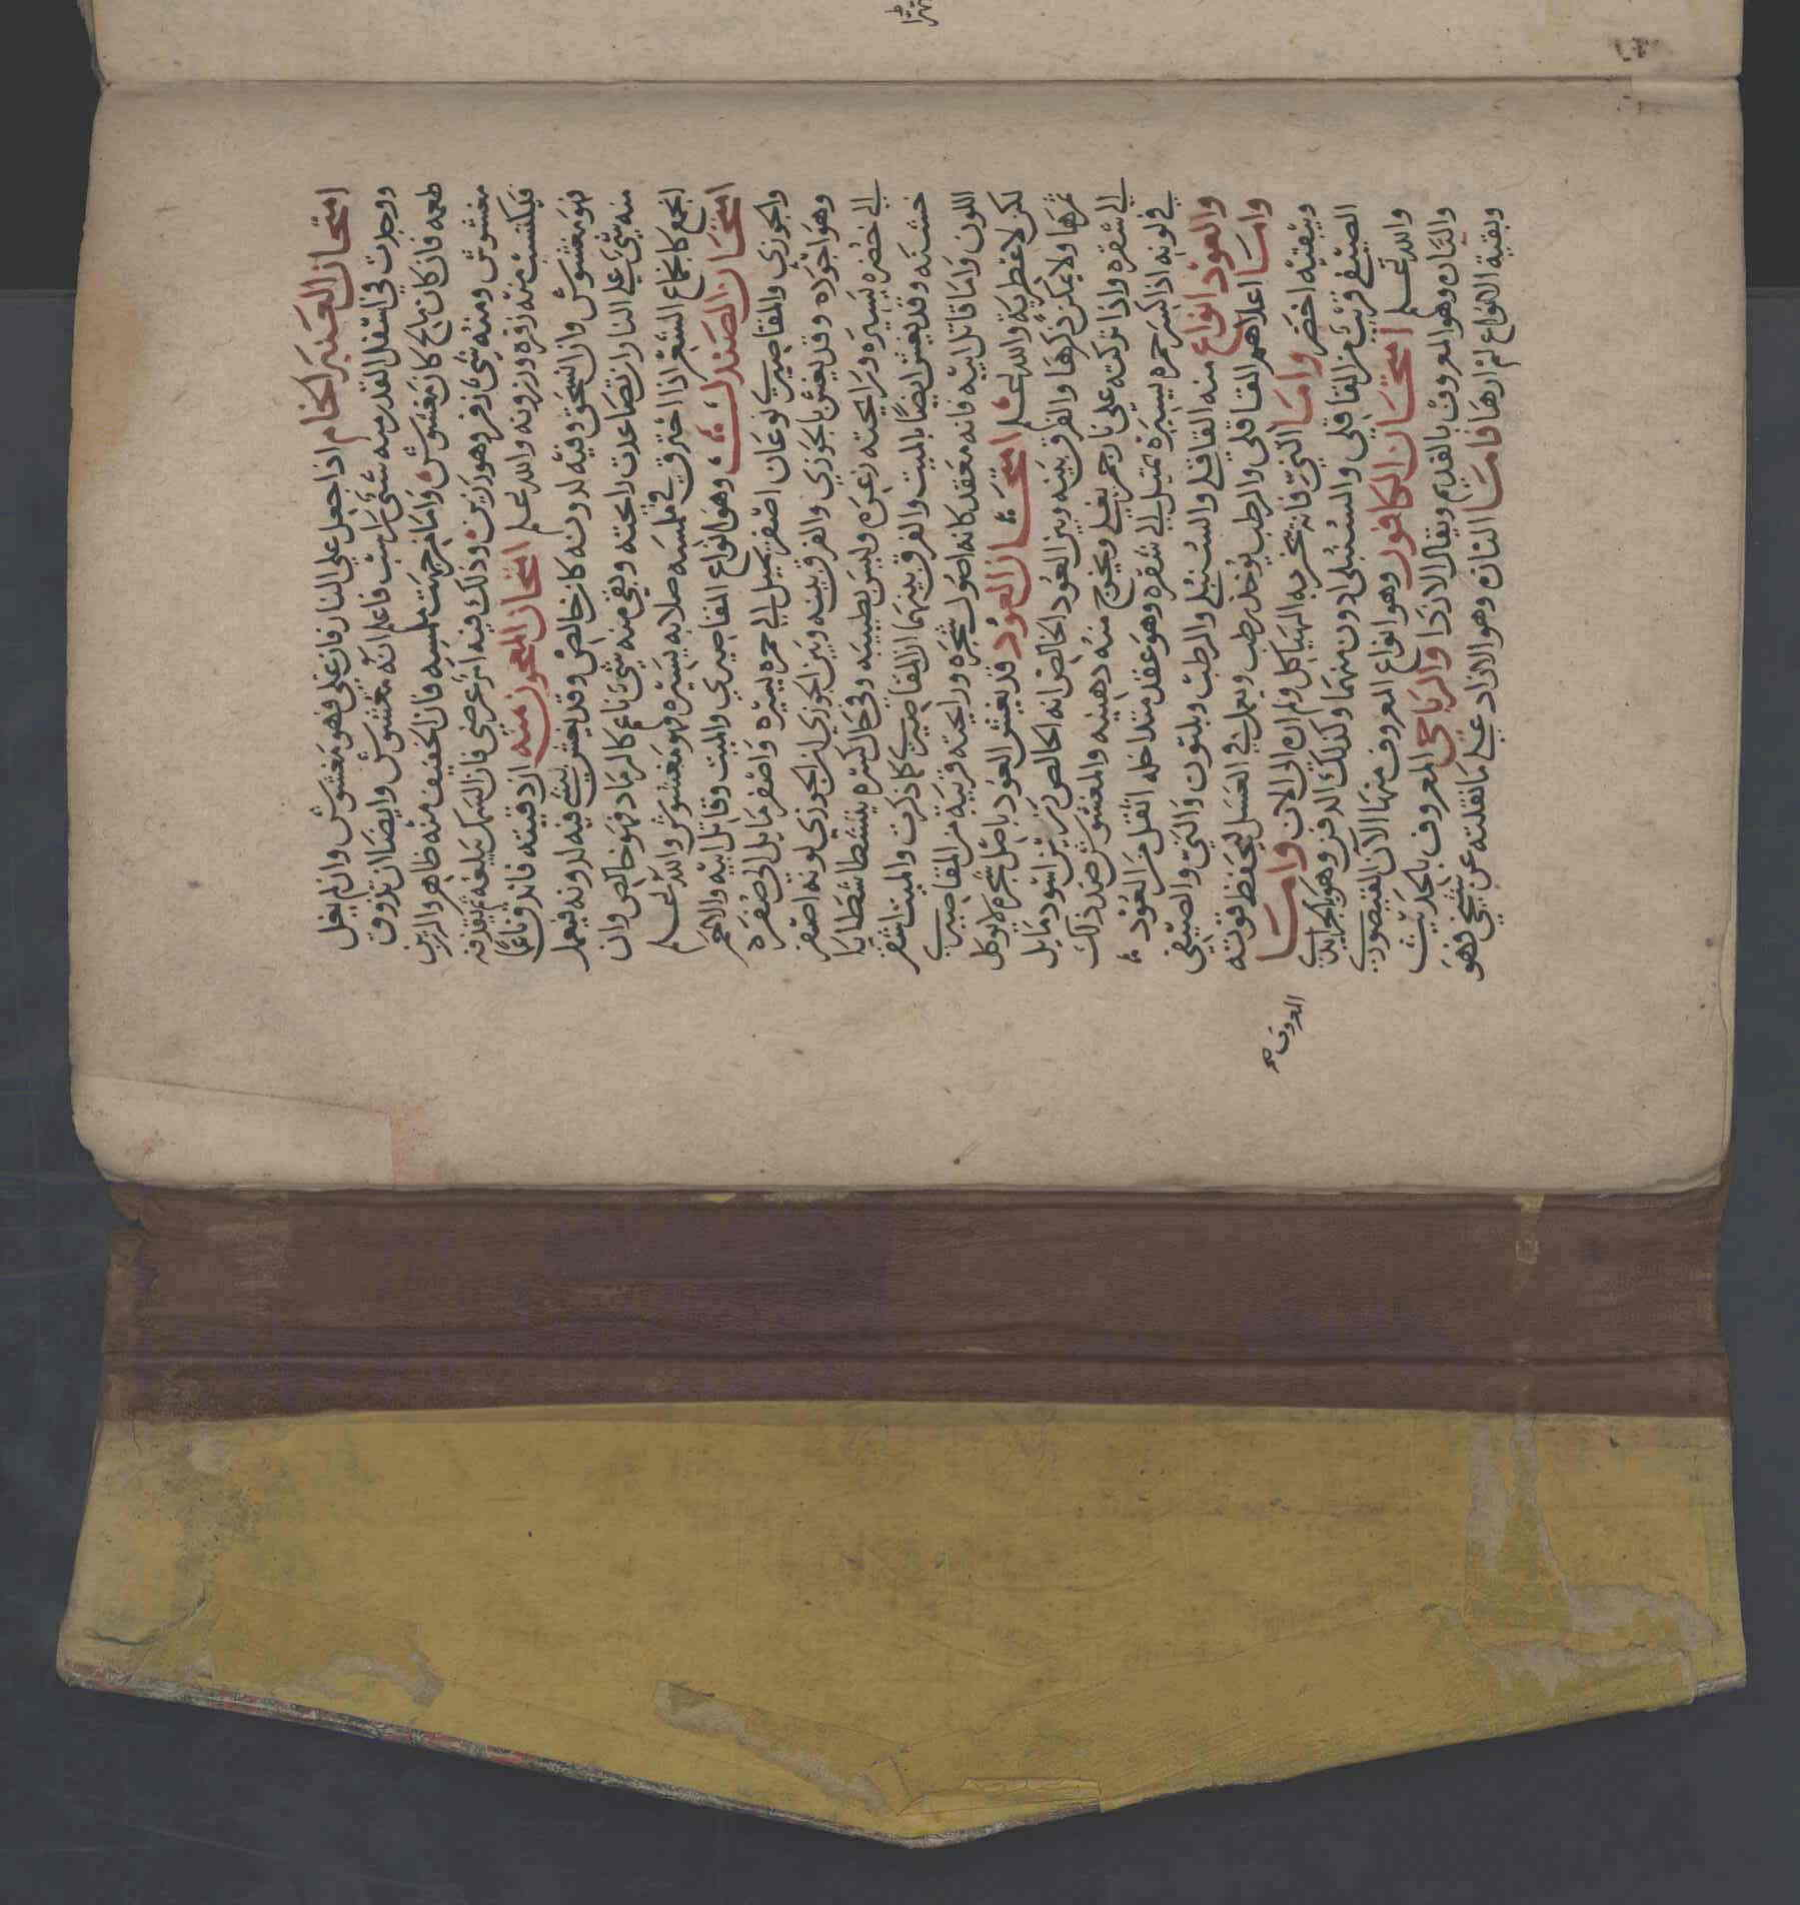 امتحان العنبر الخام اذا جعل علي النار فان غلي فهو مغشوش وان لم يغل
ووجدت في اسفل القدر منه شئ راسب فاعلم انه مغشوش وايضا ان تذوق
طعمه فان كان مالح كان مغشوش واما من جهت ملمسه فان الخفيف منه ظاهر والرزين
مغشوش ومنه شئ زفر وهو رزين وذلك فيه امر عرضي فان السمك يبلعه ثم يقذفه
فيكتسب منه زفره ورزونه والله اعلم امتحان المعجون منه ان دقيته فاندق ناعما
فهو مغشوش وان انسحق وفيه لدونه كان خالص وقد يغش بشئ فيه لدونه فيعمل
منه شئ علي النار ان تصاعدت رائحته وبقي منه شئ ناعم كالرماد فهو خالص وان
اجتمع كاجتماع الشعر اذا احترق في ملمسه صلابه يسيره فهو مغشوش والله اعلم
امتحان الصندل وهو انواع المقاصيري والميت وقاتل ابيه والاحمر
والجوزي والمقاصيري نوعان اصفر يميل الي حمره يسيره واصفر مايل الي صفره
وهو اجوده وقد يغش بالجوزي والفرق بينه وبين الجوزي ان الجوزي لونه اصفر
الي خضره يسيره ورايحته زعره وليس بطيبه وفي حال كسره يتشظا شظايا
خشنه وقد يغش ايضا بالميت والفرق بينهما ان المقاصيري كما ذكرت والميت اشقر
اللون واما قاتل ابيه فانه معقد كانه اصول شجره ورايحته قريبة من المقاصيري
لكن لا عطرية والله اعلم امتحان العود قد يغش العود باصل شجره لا يوكل
ثمرها ولا يمكن ذكرها والفرق بينه وبين العود الخالص انه الخالص رزين اسود مايل
الي شقره واذا تركته علي نار جمر يغلي ويخرج منه دهنيه والمغشوش ضد ذلك
في لونه اذا كسر حمره يسيرة تميل الي شقره وهو عقد متداخله اثقل من العود
والعود انواع منه القاقلي والسنبلي والرطب وبلتون والتني والصيفي
واما اعلاهم القاقلي والرطب يوخذ رطب ويعمل في العسل ليحفظ قوته
ويبقيه اخضر واما التني فانه يتبخر به الهياكل ولم اره الي الان واما
الصيفي قريب من القاقلي والسنبلي دون منهما وكذلك الدفن وهو الجرايدي
والله اعلم امتحان الكافور وهو انواع المعروف منها الآن القيصوري
والتاره وهو المعروف بالقديم ويقال الازاد والرباحي المعروف بالحديث
وبقية الانواع لم ارها فاما التاره وهو الازاد علي ما نقلته عن شيخي فهو
المعروف صح